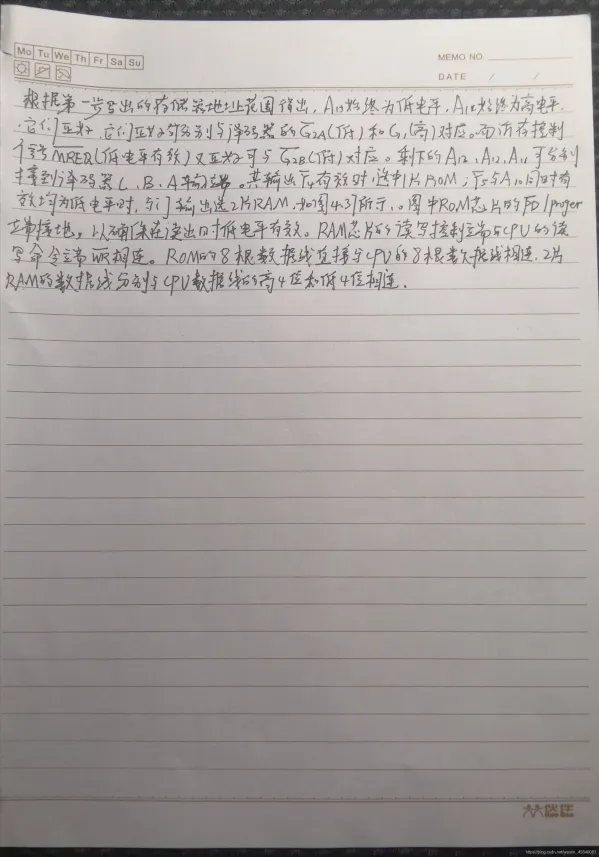 Mo Tu We Th Fr Sa Su
MEMO NO.
DATE / /
根据第一步写出的存储器地址范围得出,A15始终为低电平,A14始终为高电平.
它们正好分别与译码器的G2A(低)和G1(高)对应。而访存控制
信号MREQ(低电平有效)又正好可与G2B(低)对应。剩下的A13、A12、A11可分别
接到译码器C、B、A输入端。其输出Y4有效时,选中1片ROM;Y5与A10同时有
效均为低电平时,与门输出选2片RAM,如图4.3所示。图中ROM芯片的PD/progr
端接地,以确保在读出时低电平有效。RAM芯片的读写控制端与CPU的读
写命令端WR相连。ROM的8根数据线直接与CPU的8根数据线相连,2片
RAM的数据线分别与CPU数据线的高4位和低4位相连.